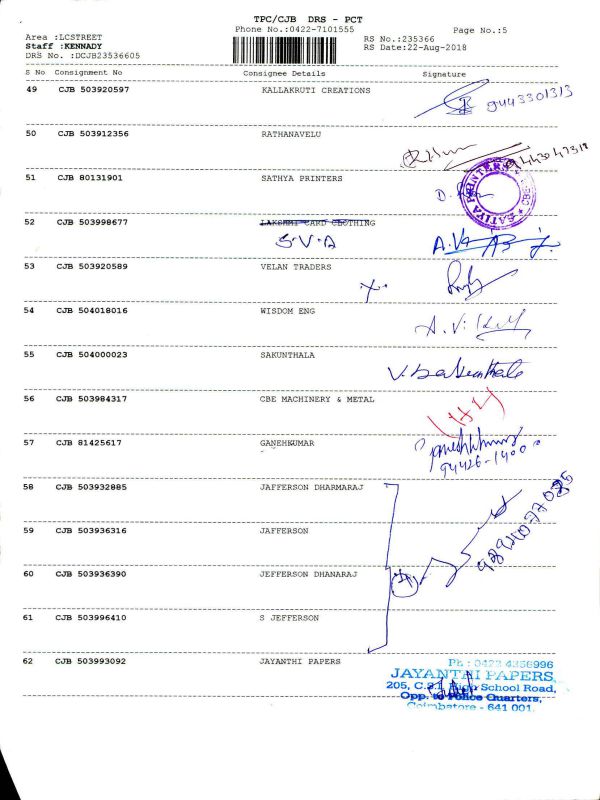 TPC/CJB DRS - PCT
Phone No.:0422-7101555
Page No.:5
Area :LCSTREET
RS No.:235366
Staff :KENNADY
RS Date:22-Aug-2018
DRS No. :DCJB23536605
S No Consignment No Consignee Details Signature
49 CJB 503920597 KALLAKRUTI CREATIONS
9443301313
50 CJB 503912356 RATHANAVELU
51 CJB 80131901 SATHYA PRINTERS
52 CJB 503998677 LAKSHMI CARD CLOTHING
S.V.A
53 CJB 503920589 VELAN TRADERS
54 CJB 504018016 WISDOM ENG
55 CJB 504000023 SAKUNTHALA
56 CJB 503984317 CBE MACHINERY & METAL
57 CJB 81425617 GANEHKUMAR
58 CJB 503932885 JAFFERSON DHARMARAJ
59 CJB 503936316 JAFFERSON
60 CJB 503936390 JEFFERSON DHANARAJ
61 CJB 503996410 S JEFFERSON
62 CJB 503993092 JAYANTHI PAPERS
Ph : 0422 4356996
JAYANTHI PAPERS,
205, C.S.I. High School Road,
Opp. to Police Quarters,
Coimbatore - 641 001.